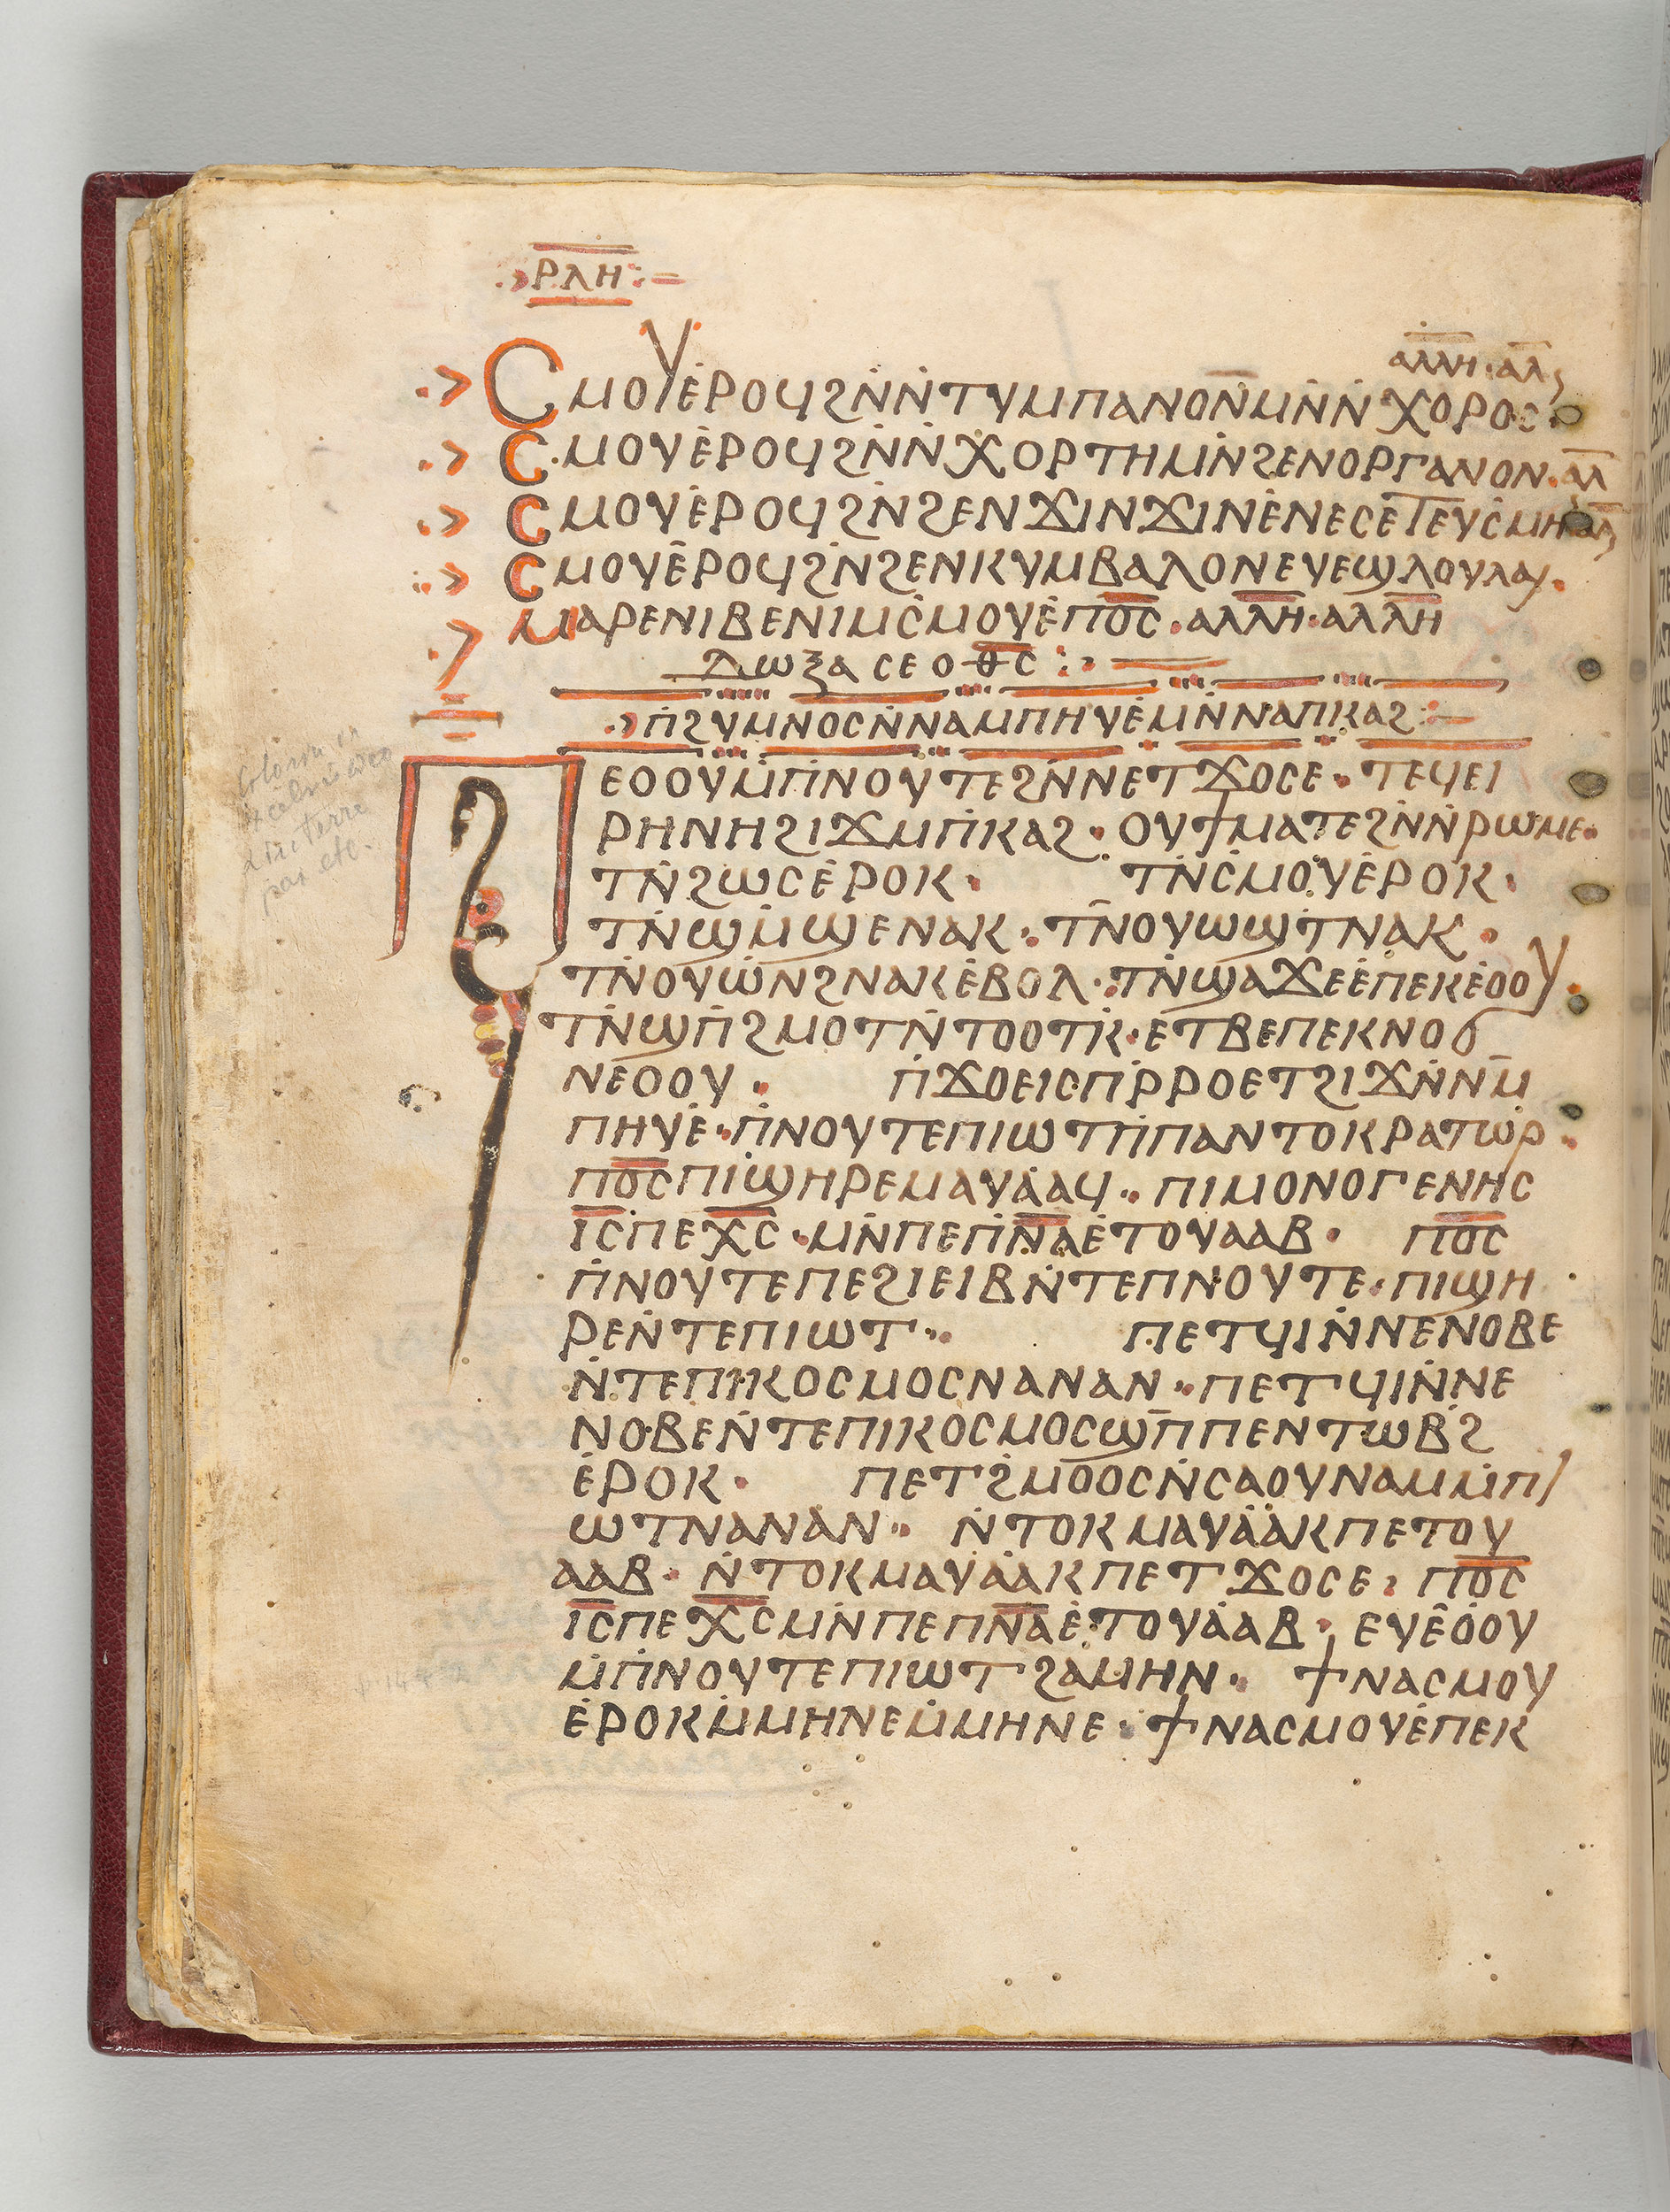 ⲣⲗⲏ
ⲁⲗⲗⲏ · ⲁⲗ
Ⲥⲙⲟⲩⲉ̇ⲣⲟϥϩⲛ̇ⲛ̇ⲧⲩⲙⲡⲁⲛⲟⲛ̄ⲙⲛ̇ⲛ̇ⲭⲟⲣⲟⲥ
Ⲥⲙⲟⲩⲉ̇ⲣⲟϥϩⲛ̇ⲛ̇ⲭⲟⲣⲧⲏⲙⲛ̇ϩⲉⲛⲟⲣⲅⲁⲛⲟⲛ · ⲁⲗ
Ⲥⲙⲟⲩⲉ̇ⲣⲟϥϩⲛ̇ϩⲉⲛϫⲓⲛϫⲓⲛⲉ̇ⲛⲉⲥⲉⲧⲉⲩⲥ̇ⲙⲏ ⲁⲗ
Ⲥⲙⲟⲩⲉ̇ⲣⲟϥϩⲛ̇ϩⲉⲛⲕⲩⲙⲃⲁⲗⲟⲛⲉⲩⲉϣⲗⲟⲩⲗⲁⲓ ·
ⲙⲁⲣⲉⲛⲓⲃⲉⲛⲓⲙⲥ̇ⲙⲟⲩⲉ̇ⲡⲟ̅ⲥ̅ · ⲁⲗⲗⲏ · ⲁⲗⲗⲏ
ⲇⲱⲝⲁ ⲥⲉ ⲟ ⲑ̅ⲥ̅
ⲡ̇ϩⲩⲙⲛⲟⲥⲛ̇ⲛⲁⲙⲡⲏⲩⲉ̇ⲙⲛ̇ⲛⲁⲡⲕⲁϩ
Ⲡⲉⲟⲟⲩⲙ̇ⲡ̇ⲛⲟⲩⲧⲉϩⲛ̇ⲛⲉⲧϫⲟⲥⲉ · ⲧⲉϥⲉⲓ
ⲣⲏⲛⲏϩⲓϫⲙⲡ̇ⲕⲁϩ · ⲟⲩϯⲙⲁⲧⲉϩⲛ̇ⲛ̇ⲣⲱⲙⲉ ·
ⲧⲛ̇ϩⲱⲥⲉ̇ⲣⲟⲕ · ⲧⲛ̇ⲥ̇ⲙⲟⲩⲉ̇ⲣⲟⲕ ·
ⲧⲛ̇ϣⲙ̇ϣⲉⲛⲁⲕ · ⲧⲛ̄ⲟⲩⲱϣⲧ̇ⲛⲁⲕ ·
ⲧⲛ̇ⲟⲩⲱ̇ⲛϩⲛⲁⲕⲉ̇ⲃⲟⲗ · ⲧⲛ̇ϣⲁϫⲉⲉ̇ⲡⲉⲕⲉ̇ⲟⲟⲩ ·
ⲧⲛ̇ϣⲡ̇ϩⲙⲟⲧⲛ̇ⲧⲟⲟⲧⲕ̇ · ⲉⲧⲃⲉⲡⲉⲕⲛⲟϭ
ⲛⲉⲟⲟⲩ · ⲡ̇ϫⲟⲉⲓⲥⲡ̇ⲣ̇ⲣⲟⲉⲧϩⲓϫⲛ̇ⲛⲙ̄
ⲡⲏⲩⲉ̇ · ⲡ̇ⲛⲟⲩⲧⲉⲡⲓⲱⲧⲡ̇ⲡⲁⲛⲧⲟⲕⲣⲁⲧⲱⲣ ·
ⲡⲟ̅ⲥ̅ⲡⲓϣⲏⲣⲉⲙⲁⲩⲁ̇ⲁϥ · ⲡⲓⲙⲟⲛⲟⲅⲉⲛⲏⲥ
ⲓ̅ⲥ̅ⲡⲉⲭ̅ⲥ̅ · ⲙⲛ̇ⲡⲉⲡ̅ⲛ̅ⲁ̅ⲉ̇ⲧⲟⲩⲁⲁⲃ · ⲡⲟ̅ⲥ̅
ⲡ̇ⲛⲟⲩⲧⲉⲡⲉϩⲓⲉⲓⲃⲛ̇ⲧⲉⲡⲛⲟⲩⲧⲉ · ⲡⲓϣⲏ
ⲣⲉⲛ̇ⲧⲉⲡⲓⲱⲧ · ⲡⲉⲧϥⲓⲛ̇ⲛⲉⲛⲟⲃⲉ
ⲛ̇ⲧⲉⲡⲓⲕⲟⲥⲙⲟⲥⲛⲁⲛⲁⲛ · ⲡⲉⲧϥⲓⲛ̇ⲛⲉ
ⲛⲟⲃⲉⲛ̇ⲧⲉⲡⲓⲕⲟⲥⲙⲟⲥϣⲡ̄ⲡⲉⲛⲧⲱⲃϩ
ⲉ̇ⲣⲟⲕ · ⲡⲉⲧϩⲙⲟⲟⲥⲛ̇ⲥⲁⲟⲩⲛⲁⲙⲙ̇ⲡⲓ
ⲱⲧⲛⲁⲛⲁⲛ · ⲛ̇ⲧⲟⲕⲙⲁⲩⲁ̇ⲁⲕⲡⲉⲧⲟⲩ
ⲁⲁⲃ · ⲛ̇ⲧⲟⲕⲙⲁⲩⲁ̇ⲁⲕⲡⲉⲧϫⲟⲥⲉ · ⲡⲟ̅ⲥ̅
ⲓ̅ⲥ̅ⲡⲉⲭ̅ⲥ̅ⲙⲛ̇ⲡⲉⲡ̅ⲛ̅ⲁ̅ⲉ̇ⲧⲟⲩⲁ̇ⲁⲃ · ⲉⲩⲉ̇ⲟ̇ⲟⲩ
ⲙ̇ⲡ̇ⲛⲟⲩⲧⲉⲡⲓⲱⲧϩⲁⲙⲏⲛ · ϯⲛⲁⲥⲙⲟⲩ
ⲉ̇ⲣⲟⲕⲙ̇ⲙⲏⲛⲉⲙ̇ⲙⲏⲛⲉ · ϯⲛⲁⲥⲙⲟⲩⲉ̇ⲡⲉⲕ